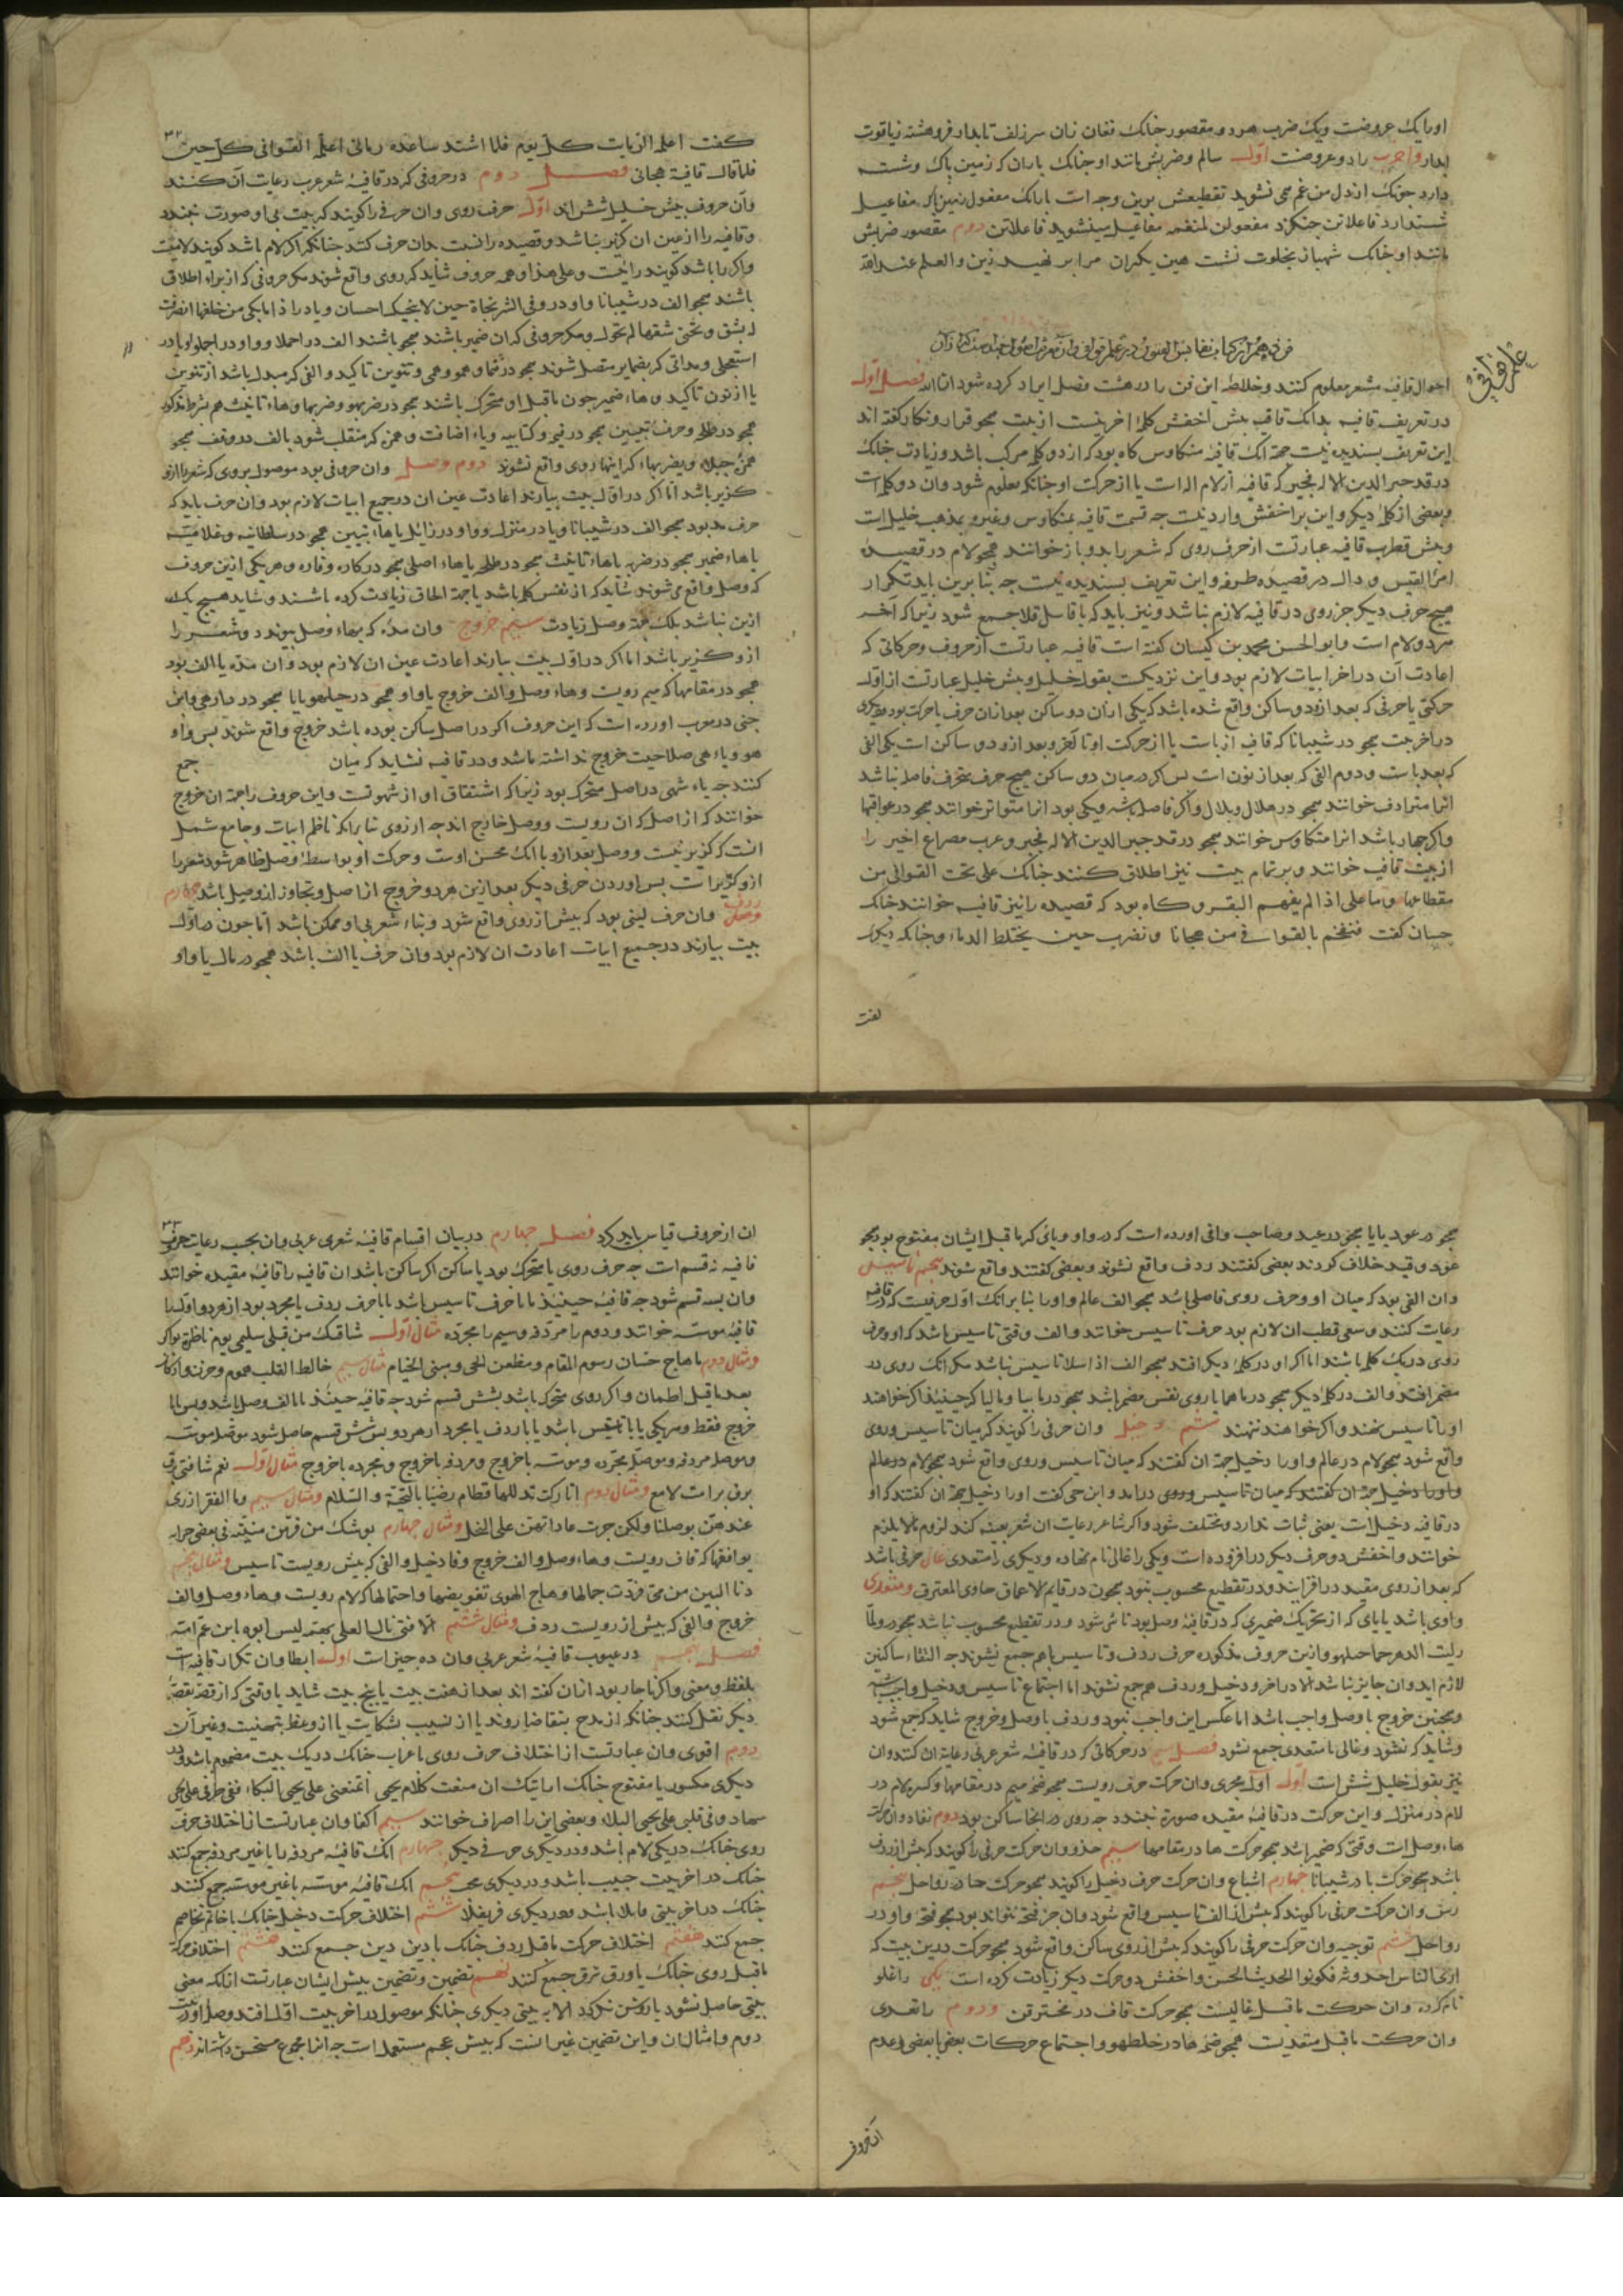 اورا یک عروضست ویک ضرب هردو مقصور جنانک فغان زان سر زلف تابدار فروهشته زیاقوت
ابدار واخرب را دو عروضست اول سالم وضربش مانند او جنانک باران که زمین پاک وشسته
دارد جونک از دل من غم می نشوید تقطیعش برین وجه است بارانک مفعول زمین پاک مفاعیل
شستدارد فاعلاتن جنکزد مفعولن لمنغمه مفاعیل مینشوید فاعلاتن دوم مقصور ضربش
مانند او جنانک شهباز بخلوت نشست همین یکران مرا بر نهید زین والعلم عند الله
علم قوافی
فن دهم از کتاب نفایس الفنون در علم قوافی وان معرفت اصولی جند است که از آن
احوال قافیه شعر معلوم کنند وخلاصه این فن را در هشت فصل ایراد کرده شود ان شاء الله فصل اول
در تعریف قافیه بدانک قافیه بیش اخفش کلمه اخرینست از بیت همجو قرار ونکار کفته اند
این تعریف بسندیده نیست جهة انک قافیه متکاوس کاه بود که از دو کلمه مرکب باشد وزیادت جنانک
در قد جبر الدین الاله فجبر که قافیه از لام اله است یا از حرکت او جنانکه معلوم شود وان دو کلمه است
وبعضی از کلمه دیکر واین بر اخفش وارد نیست جه قسمت قافیه بمتکاوس وغیرو بمذهب خلیل است
وبیش قطرب قافیه عبارتست از حرف روی که شعر را بدو باز خوانند همجو لام در قصیده
امرؤ القیس و دال در قصیده طرفه واین تعریف بسندیده نیست جه بنا برین باید تکرار
هیج حرف دیکر جز روی در قافیه لازم نباشد ونیز باید که با قاسل قلا جمع شود زیرا که آخر
هردو لام است وابو الحسن محمد بن کیسان کفته است قافیه عبارتست از حروف وحرکاتی که
اعادت آن در اخر ابیات لازم بود واین نزدیکست بقول خلیل وبیش خلیل عبارتست از اول
حرکتی یا حرفی که بعد از و دو ساکن واقع شده باشد که یکی از ان دو ساکن بعد از ان حرف یا حرکت بود ودیکری
در اخر بیت همجو در شیبانا که قافیه از با ست یا از حرکت او تا آخر وبعد از و دو ساکن است یکی الفی
که بعد با ست و دوم الفی که بعد از نون است بس اکر در میان دو ساکن هیج حرف متحرک فاصله نباشد
انرا مترادف خوانند همجو در هلال وبلال واکر فاصل باشد ویکی بود انرا متواتر خوانند همجو در عواقبها
واکر جهار باشد انرا متکاوس خوانند همجو در قد جبر الدین الاله فجبر وعرب مصراع اخیر را
از بیت قافیه خوانند وبر تمام بیت نیز اطلاق کنند جنانک علی نحت القوافی من
مقطاعها وما علی اذا لم یفهم البقر وکاه بود که قصیده را نیز قافیه خوانند جنانک
حسان کفت فنفخم بالقوافی من هجانا ونضرب حین یختلط الدماء وجنانکه دیکری
کفت
۳۲
کفت اعلمه الرمایت کل یوم فلما اشتد ساعده رمانی اعلمه القوافی کل حین
فلما قال قافیة هجانی فصل دوم در حروفی که در قافیه شعر عرب رعایت آن کنند
وآن حروف بیش خلیل شش اند اول حرف روی وان حرفی را کویند که بیت بی او صورت نبندد
وقافیه را از عین ان کزیر نباشد وقصیده را نسبت بدان حرف کنند جنانکه اکر لام باشد کویند لامیست
واکر را باشد کویند رائیست وعلی هذا وهمه حروف شاید که روی واقع شوند مکر حروفی که از برای اطلاق
باشند همجو الف در شیبانا و واو در وفی الشر نجاة حین لا ینجیک احسان ویا در اذا ما بکی من خلفها انصرفت
له بشق وتحتی شقها لم تحول ومکر حروفی که ان ضمیر باشند همجو باشند الف در احملا وواو در احملوا ویا در
استعجلی ومداتی که بضمایر متصل شوند همجو در نما وهمو وهمی وتنوین تاکید والفی که مبدل باشد از تنوین
یا از نون تاکید وهاء ضمیر جون ماقبل او متحرک باشند همجو در ضربهو وضربها وهاء تانیث هم بشرط مذکور
همجو در طلحه وحرف تبیین همجو در فیم وکتابیه ویاء اضافت وهمزه که منقلب شود بالف در وقف همجو
همزه جبلاء ویضربهاء که اینها روی واقع نشوند دوم وصل وان حرفی بود موصول بروی که شعر را ازو
کزیر باشد امّا اکر در اول بیت بیارند اعادت عین ان در جمیع ابیات لازم بود وان حرف باید که
حرف مد بود همجو الف در شیبانا ویا در منزل وواو در زائل یا هاء تبیین همجو در سلطانیه وغلامیه
یا هاء ضمیر همجو در ضربه یا هاء تانیث همجو در طلحه یا هاء اصلی همجو در کاره وفاره وهر یکی ازین حروف
که وصل واقع می شوند شاید که از نفس کلمه باشد یا جهة الحاق زیادت کرده باشند وشاید هیج یک
ازین نباشد بلک جهة وصل زیادت سیم خروج وان مدّه که بهاء وصل بیوندد وشعر را
ازو کزیر باشد اما اکر در اول بیت بیارند اعادت عین ان لازم بود وان مدّه یا الف بود
همجو در مقامها که میم رویست وهاء وصل والف خروج یا واو همجو در حبلهو یا یا همجو در دارهی وابن
جنی در معرب اورده است که این حروف اکر در اصل ساکن بوده باشد خروج واقع شوند بس واو
هو ویاء هی صلاحیت خروج نداشته باشد ودر قافیه نشاید که میان جمع
کنند جه یاء شهی در اصل متحرک بود زیرا که اشتقاق او از شهوتست واین حروف را جهة ان خروج
خوانند که از اصل که ان رویست ووصل خارج اند جه از روی بنا بر انکه ناظم ابیات وجامع شمل
انست که کزیر نیست ووصل بعد ازو با انک محسن اوست وحرکت او بواسطه وصل ظاهر شود شعر را
ازو کزیر است بس اوردن حرفی دیکر بعد ازین هردو خروج از اصل وتجاوز از وصل باشد جهارم
ردف وان حرف لینی بود که بیش از روی واقع شود وبناء شعر بی او ممکن باشد امّا جون در اول
بیت بیارند در جمیع ابیات اعادت ان لازم بود وان حرف یا الف باشد همجو در مال یا واو
همجو در عود یا یا همجو در عید وصاحب وافی اورده است که در واو ویائی که ماقبل ایشان مفتوح بود همجو
عود وقید خلاف کردند بعضی کفتند ردف واقع نشوند وبعضی کفتند واقع شوند پنجم تاسیس
وان الفی بود که میان او وحرف روی فاصلی باشد همجو الف عالم واورا بنا بر انک اول حرفیست که در قافیه
رعایت کنند وسعی قطب ان لازم بود حرف تاسیس خوانند والف وقتی تاسیس باشد که او وحرف
روی در یک کلمه باشند اما اکر او در کلمه دیکر افتد همجو الف اذا سلا تاسیس نباشد مکر انک روی در
مضمر افتد والف در کلمه دیکر همجو در ماهما یا روی نفس مضمر باشد همجو در بابیا ومالیا که حینئذ اکر خواهند
اورا تاسیس نهند واکر خواهند ننهند ششم دخیل وان حرفی را کویند که میان تاسیس وروی
واقع شود همجو لام در عالم واورا دخیل جهة ان کفتند که میان تاسیس وروی واقع شود همجو لام در عالم
واورا دخیل جهة ان کفتند که میان تاسیس وروی درامد وابن جنی کفت اورا دخیل جهة ان کفتند که او
در قافیه دخیل است یعنی ثبات ندارد ومختلف شود واکر شاعر رعایت ان شعر بعینه کند لزوم مالا یلزم
خوانند واخفش دو حرف دیکر در افزوده است ویکی را غالی نام نهاده ودیکری را متعدی غالی حرفی باشد
که بعد از روی مقید در افزایند ودر تقطیع محسوب نبود همجون در قاتم الاعماق خاوی المخترق ومتعدی
واوی باشد یا یائی که از تحریک ضمیری که در قافیه وصل بود ناشی شود ودر تقطیع محسوب نباشد همجو در ولمّا
رایت الدهر جما حبلهو وازین حروف مذکوره حرف ردف وتاسیس باهم جمع نشوند جه التقاء ساکنین
لازم اید وان جایز نباشد الا در اخر ودخیل وردف هم جمع نشوند اما اجتماع تاسیس ودخیل واجب باشد
وهمجنین خروج با وصل واجب باشد اما عکس این واجب نبود وردف با وصل وخروج شاید که جمع شود
وشاید که نشود وغالی با متعدی جمع نشود فصل سیم در حرکاتی که در قافیه شعر عربی رعایة ان کنند وان
نیز بقول خلیل شش است اول مجری وان حرکت حرف رویست همجو فتحه میم در مقامها وکسره لام در
لام در منزل واین حرکت در قافیه مقیده صورة نبندد جه روی در انجا ساکن بود دوم نفاذ وان حرکت
هاء وصل است وقتی که ضمیر باشد همجو حرکت ها در مقامها سیم حذو وان حرکت حرفی را کویند که بیش از ردف
باشد همجو حرکت با در شیبانا جهارم اشباع وان حرکت حرف دخیل را کویند همجو حرکت حا در رواحل پنجم
رس وان حرکت حرفی را کویند که بیش از الف تاسیس واقع شود وان جز فتحه نتواند بود همجو فتحه واو در
رواحل ششم توجیه وان حرکت حرفی را کویند که بیش از روی ساکن واقع شود همجو حرکت در این بیت که
اری الناس احدوثه فکونوا الحدیث الحسن واخفش دو حرکت دیکر زیادت کرده است یکی را غلو
نام کرده وان حرکت ماقبل غالیست همجو حرکت قاف در مخترقن ودوم را تعدی
وان حرکت ماقبل متعدیست همجو ضمه ها در خلطهو واجتماع حرکات بعضی با بعضی وعدم
ان از حروف
۳۳
ان از حروف قیاس باید کرد فصل جهارم در بیان اقسام قافیه شعری عربی وان بحسب رعایت حرف
قافیه نه قسم است جه حرف روی یا متحرک بود یا ساکن اکر ساکن باشد ان قافیه را قافیه مقیده خوانند
وان بسه قسم شود جه قافیه حینئذ یا با حرف تاسیس باشد یا با حرف ردف یا مجرد بود از هردو اول را
قافیه موسسه خوانند ودوم را مردفه وسیم را مجرّده مثال اول شاقک من قبلی سلیمی یوم ناظرة بواکر
ومثال دوم ما هاج حسّان رسوم المقام ومظعن الحی ومبنی الخیام مثال سیم خالط القلب هموم وحزن وادکار
بعد ما قبل اطمان واکر روی متحرک باشد بشش قسم شود جه قافیه حینئذ یا با الف وصل باشد وبس یا با
خروج فقط وهر یکی یا با تاسیس باشد یا با ردف یا مجرد از هردو بس شش قسم حاصل شود موصله موسسه
وموصله مردفه وموصله مجرده وموسسه با خروج ومردفه با خروج ومجرده با خروج مثال اول نعم شاقنی برق
برق برامت لامع ومثال دوم اتارکت تدللها قطام رضینا بالتحیّة والسّلام ومثال سیم وما الفقر ازری
عندهنّ بوصلنا ولکن جرت عاداتهنّ علی البخل ومثال جهارم یوشک من فرّ من منیّته فی بعض غراته
یوافقها که قاف رویست وهاء وصل والف خروج وفا دخیل والفی که بیش رویست تاسیس ومثال پنجم
دنا البین من میّ فردّت جمالها وهاج الهوی تقویضها واحتمالها که لام رویست وهاء وصل والف
خروج والفی که بیش از رویست ردف ومثال ششم الا فتی نال العلی بهمّه لیس ابوه بابن عمّ امّه
فصل پنجم در عیوب قافیه شعر عربی وان ده جیز است اول ایطا وان تکرار قافیه است
بلفظ ومعنی واکر ناجار بود ازان کفته اند بعد از هفت بیت یا پنج بیت شاید یا وقتی که از قصّه بقصّه
دیکر نقل کنند جنانکه از مدح بتقاضا روند یا از نسیب بشکایت یا از وعظ بتهنیت وغیر آن
دوم اقوی وان عبارتست از اختلاف حرف روی باعراب جنانک در یک بیت مضموم باشد ودر
دیکری مکسور یا مفتوح جنانک ارایتک ان منعت کلام یحیی اتمنعنی علی یحیی البکاء ففی طرفی علی یحیی
سهاد وفی قلبی علی یحیی البلاء وبعضی این را اصراف خوانند سیم اکفا وان عبارتست از اختلاف حرف
روی جنانک در یکی لام باشد ودر دیکری حرفی دیکر جهارم انک قافیه مردفه را با غیر مردفه جمع کنند
جنانک در اخر بیت حبیب باشد ودر دیکری محب پنجم انک قافیه موسسه با غیر موسسه جمع کنند
جنانک در اخر بیتی قابلا باشد ودر دیکری فرنفلا ششم اختلاف حرکت دخیل جنانک با خاتم تخاصم
جمع کنند هفتم اختلاف حرکت ماقبل ردف جنانک با دین دین جمع کنند هشتم اختلاف حرکت
ماقبل روی جنانک با ورق ترق جمع کنند نهم تضمین وتضمین بیش ایشان عبارتست از انکه معنی
بیتی حاصل نشود یا روشن نکردد الا به بیتی دیکری جنانکه موصول در اخر بیت اول افتد وصله او در بیت
دوم وامثال ان واین تضمین غیر انست که بیش عجم مستعمل است جه انرا مجموع مستحسن داشته اند دهم